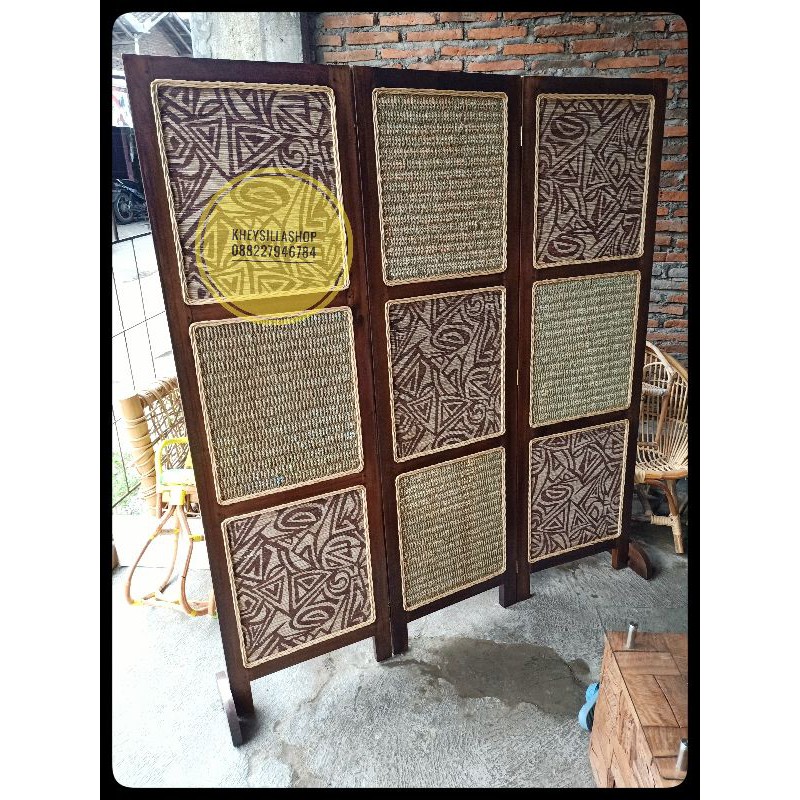 KHEYSILLASHOP
088227946784